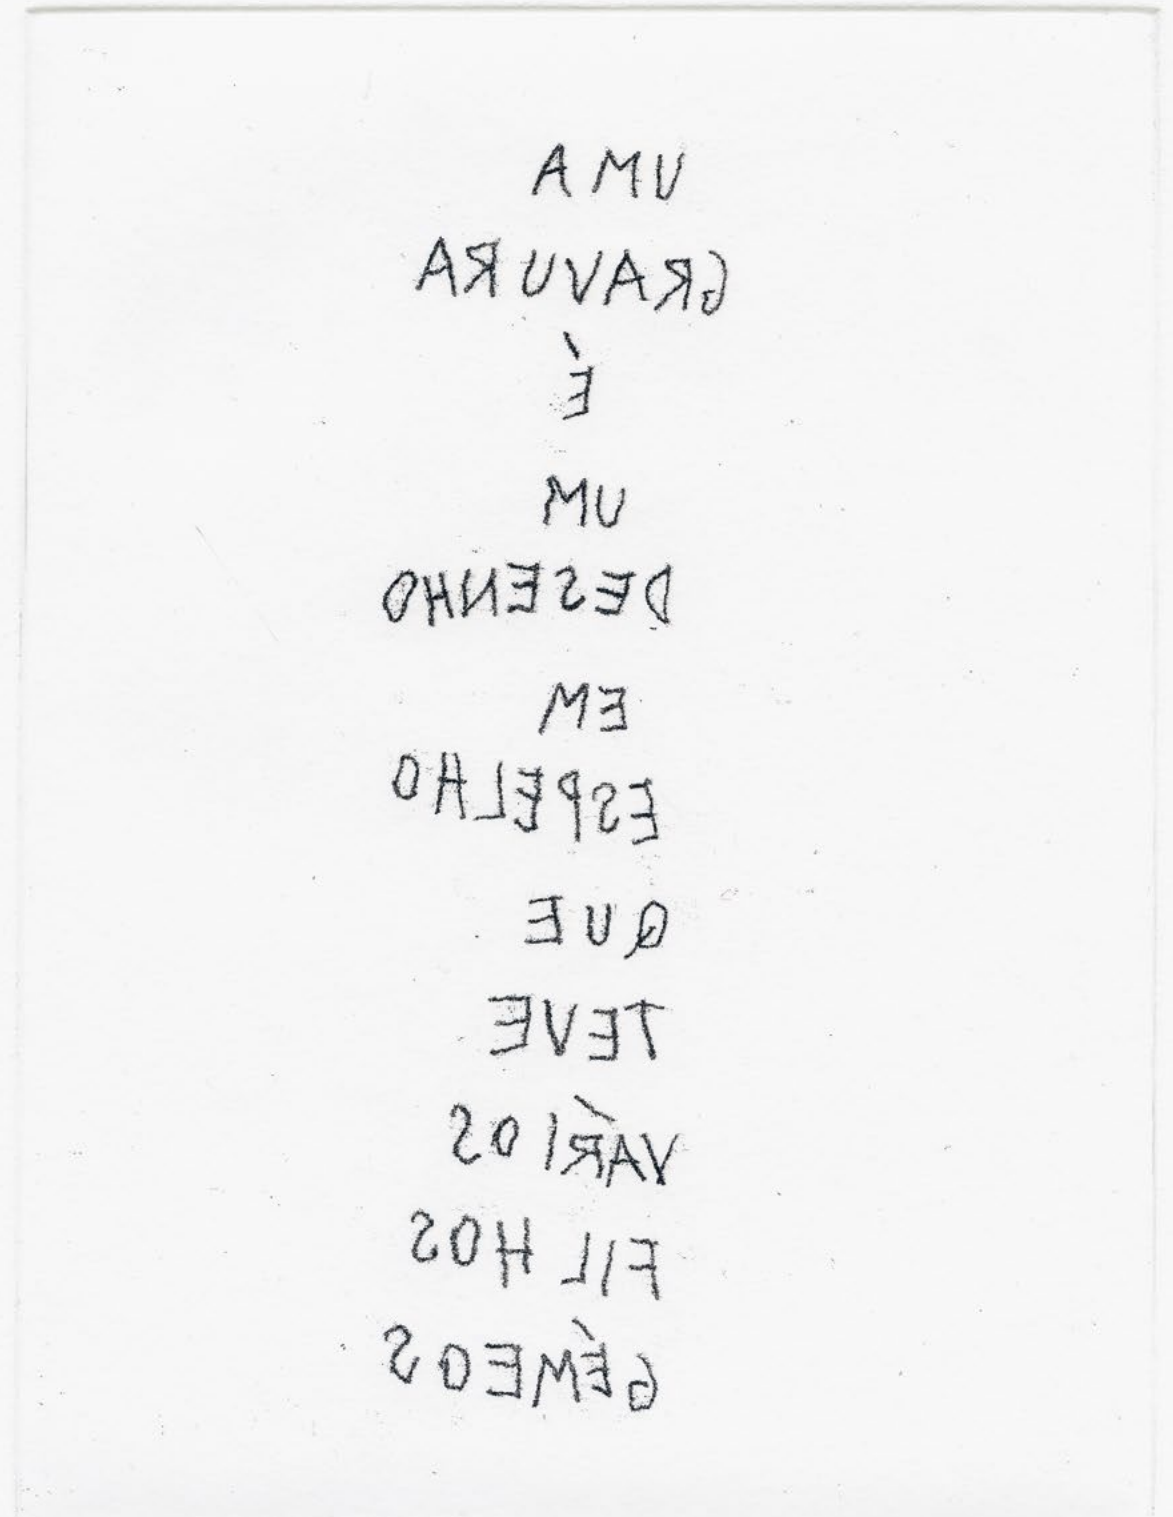 UMA
GRAVURA
É
UM
DESENHO
EM
ESPELHO
QUE
TEVE
VÁRIOS
FILHOS
GÉMEOS